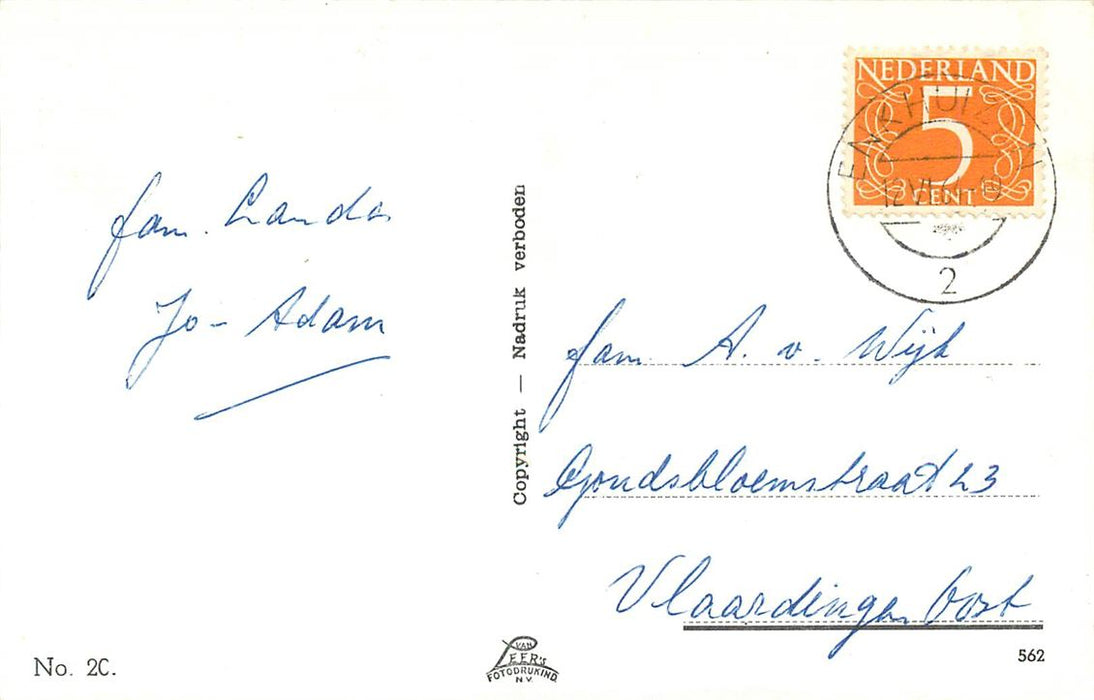 fam. Landa
Jo - Adam
Copyright — Nadruk verboden
NEDERLAND
5
CENT
ENKHUIZEN
12.VI.6
2
fam. A. v. Wijk
Goudsbloemstraat 23
Vlaardingen Oost
No. 2C.
VAN
LEER'S
FOTODRUKIND.
N.V.
562